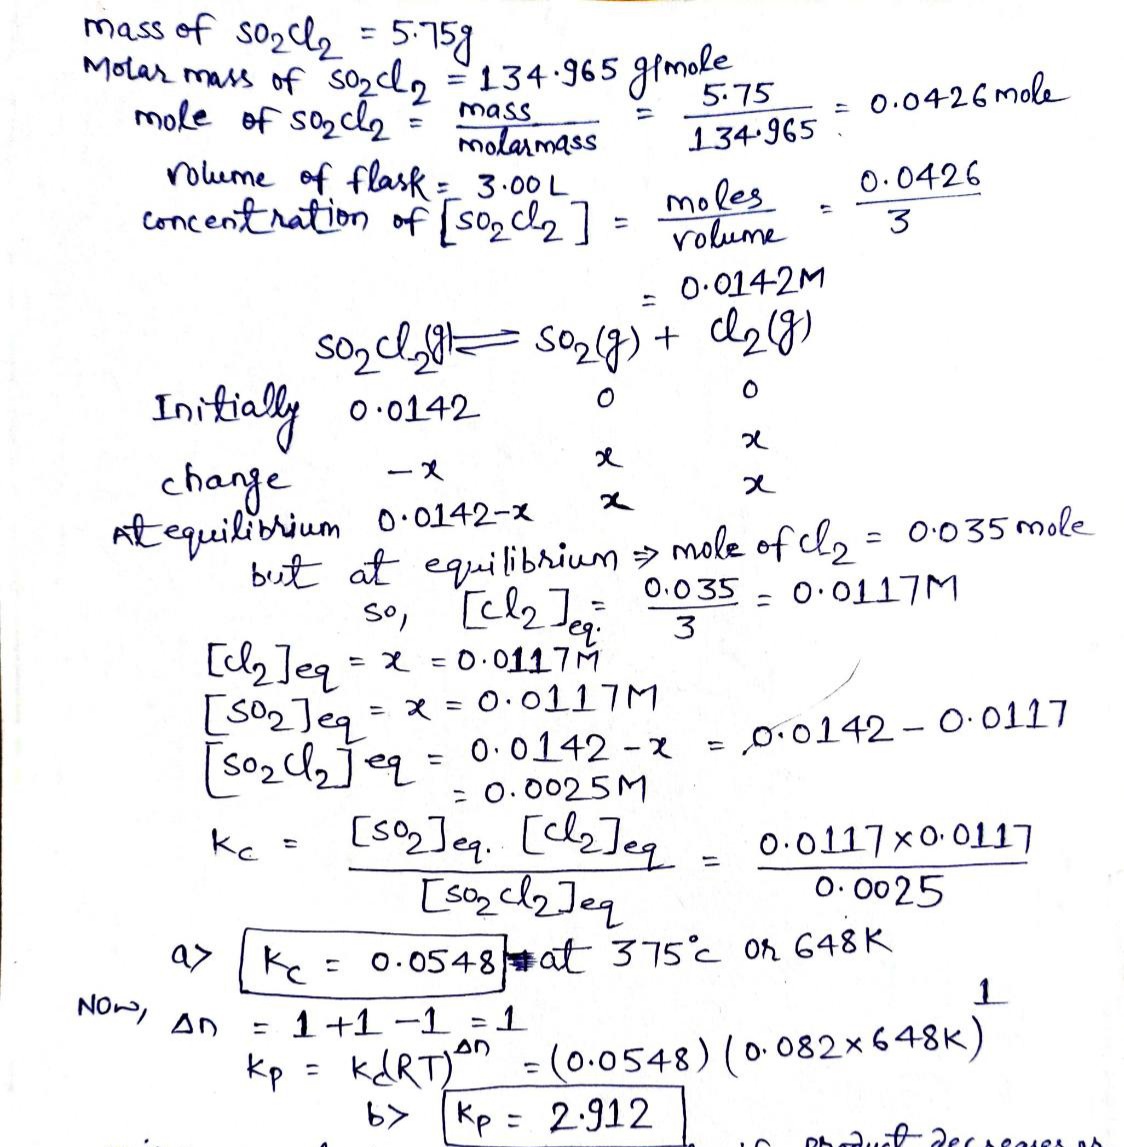 mass of SO2Cl2 = 5.75g
Molar mass of SO2Cl2 = 134.965 g/mole
mole of SO2Cl2 = mass/molarmass = 5.75/134.965 = 0.0426 mole
volume of flask = 3.00 L
concentration of [SO2Cl2] = moles/volume = 0.0426/3
= 0.0142M
SO2Cl2(g) ⇌ SO2(g) + Cl2(g)
Initially 0.0142 0 0
change -x x x
At equilibrium 0.0142-x x x
but at equilibrium ⇒ mole of Cl2 = 0.035 mole
so, [Cl2]eq. = 0.035/3 = 0.0117M
[Cl2]eq = x = 0.0117M
[SO2]eq = x = 0.0117M
[SO2Cl2]eq = 0.0142 - x = 0.0142 - 0.0117
= 0.0025M
Kc = [SO2]eq. [Cl2]eq / [SO2Cl2]eq = 0.0117 x 0.0117 / 0.0025
a> Kc = 0.0548 at 375°c or 648K
Now, Δn = 1+1-1 = 1
Kp = Kc(RT)^Δn = (0.0548) (0.082 x 648K)^1
b> Kp = 2.912
product decreases